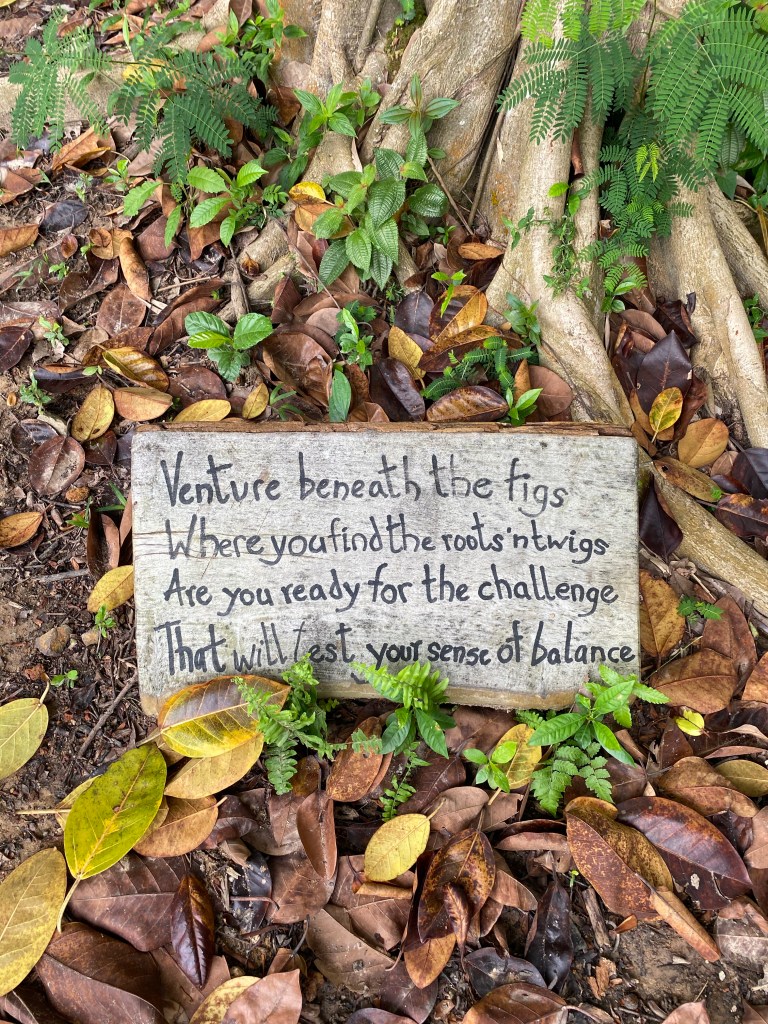 Venture beneath the figs
Where you find the roots 'n twigs
Are you ready for the challenge
That will test your sense of balance